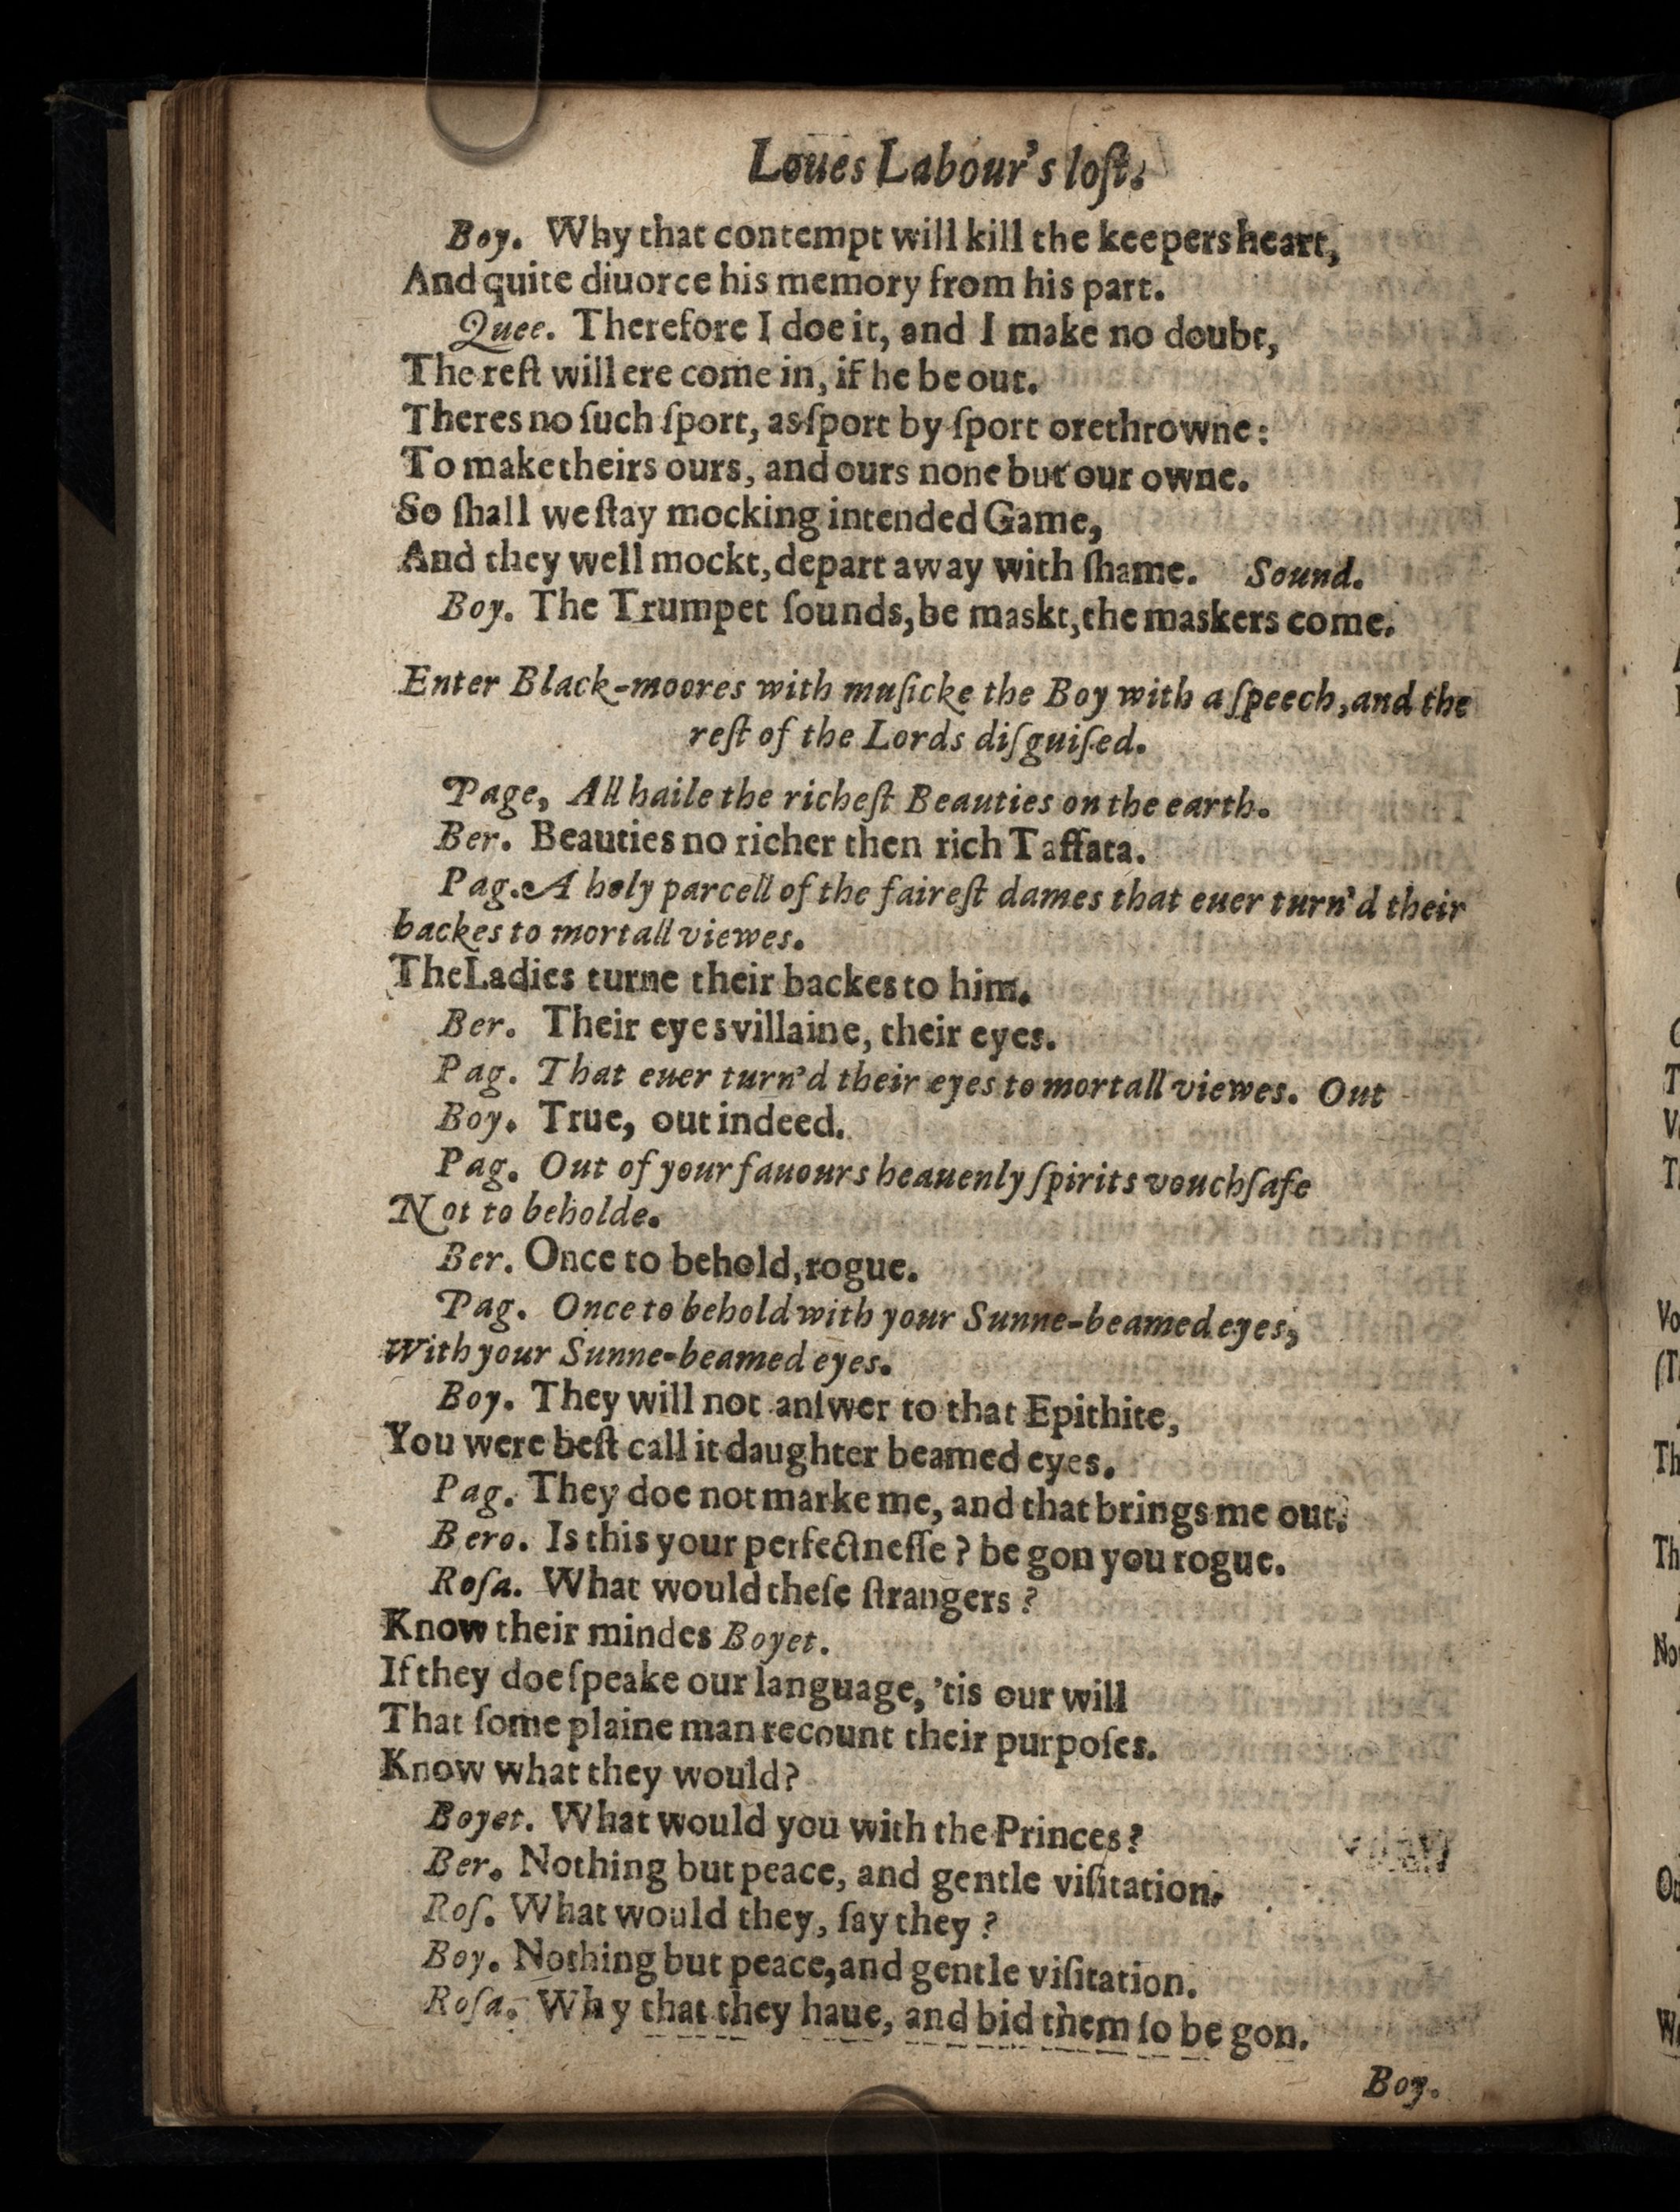 Loues Labour's loſt.
Boy. Why that contempt will kill the keepers heart,
And quite diuorce his memory from his part.
Quee. Therefore I doe it, and I make no doubt,
The reſt will ere come in, if he be out.
Theres no ſuch ſport, as ſport by ſport orethrowne:
To make theirs ours, and ours none but our owne.
So ſhall we ſtay mocking intended Game,
And they well mockt, depart away with ſhame. Sound.
Boy. The Trumpet ſounds, be maskt, the maskers come.
Enter Black-moores with muſicke the Boy with a ſpeech, and the
reſt of the Lords diſguiſed.
Page, All haile the richeſt Beauties on the earth.
Ber. Beauties no richer then rich Taffata.
Pag. A holy parcell of the faireſt dames that euer turn'd their
backes to mortall viewes.
The Ladies turne their backes to him.
Ber. Their eyes villaine, their eyes.
Pag. That euer turn'd their eyes to mortall viewes. Out
Boy. True, out indeed.
Pag. Out of your fauours heauenly ſpirits vouchſafe
Not to beholde.
Ber. Once to behold, rogue.
Pag. Once to behold with your Sunne-beamed eyes,
With your Sunne-beamed eyes.
Boy. They will not anſwer to that Epithite,
You were beſt call it daughter beamed eyes.
Pag. They doe not marke me, and that brings me out.
Bero. Is this your perfectneſſe? be gon you rogue.
Roſa. What would theſe ſtrangers?
Know their mindes Boyet.
If they doe ſpeake our language, 'tis our will
That ſome plaine man recount their purpoſes.
Know what they would?
Boyet. What would you with the Princes?
Ber. Nothing but peace, and gentle viſitation.
Roſ. What would they, ſay they?
Boy. Nothing but peace, and gentle viſitation.
Roſa. Why that they haue, and bid them ſo be gon.
Boy.